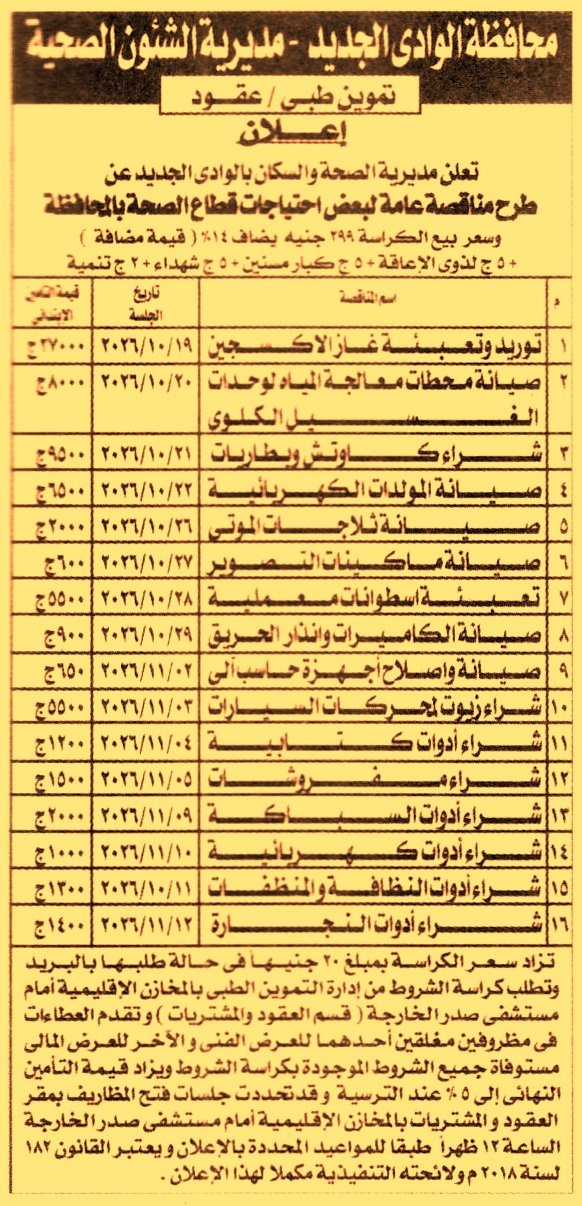 محافظة الوادى الجديد - مديرية الشئون الصحية
تموين طبى / عقود
إعلان
تعلن مديرية الصحة والسكان بالوادى الجديد عن
طرح مناقصة عامة لبعض احتياجات قطاع الصحة بالمحافظة
وسعر بيع الكراسة ٢٩٩ جنيه يضاف ١٤٪ ( قيمة مضافة )
+ ٥ ج لذوى الإعاقة + ٥ ج كبار مسنين + ٥ ج شهداء + ٢ ج تنمية
م اسم المناقصة تاريخ الجلسة قيمة التأمين الإبتدائى
١ توريد وتعبئة غاز الاكسجين ٢٠٢٦/١٠/١٩ ٢٧٠٠٠ج
٢ صيانة محطات معالجة المياه لوحدات ٢٠٢٦/١٠/٢٠ ٨٠٠٠ج
الغسيل الكلوى
٣ شراء كاوتش وبطاريات ٢٠٢٦/١٠/٢١ ٩٥٠٠ج
٤ صيانة المولدات الكهربائية ٢٠٢٦/١٠/٢٢ ٦٥٠٠ج
٥ صيانة ثلاجات الموتى ٢٠٢٦/١٠/٢٦ ٢٠٠٠ج
٦ صيانة ماكينات التصوير ٢٠٢٦/١٠/٢٧ ٦٠٠ج
٧ تعبئة اسطوانات معملية ٢٠٢٦/١٠/٢٨ ٥٥٠٠ج
٨ صيانة الكاميرات وانذار الحريق ٢٠٢٦/١٠/٢٩ ٩٠٠ج
٩ صيانة واصلاح أجهزة حاسب ألى ٢٠٢٦/١١/٠٢ ٦٥٠ج
١٠ شراء زيوت لمحركات السيارات ٢٠٢٦/١١/٠٣ ٥٥٠٠ج
١١ شراء أدوات كتابية ٢٠٢٦/١١/٠٤ ١٢٠٠ج
١٢ شراء مفروشات ٢٠٢٦/١١/٠٥ ١٥٠٠ج
١٣ شراء أدوات السباكة ٢٠٢٦/١١/٠٩ ٢٠٠٠ج
١٤ شراء أدوات كهربائية ٢٠٢٦/١١/١٠ ١٠٠٠ج
١٥ شراء أدوات النظافة والمنظفات ٢٠٢٦/١٠/١١ ١٣٠٠ج
١٦ شراء أدوات النجارة ٢٠٢٦/١١/١٢ ١٤٠٠ج
تزاد سعر الكراسة بمبلغ ٢٠ جنيهاً فى حالة طلبها بالبريد
وتطلب كراسة الشروط من إدارة التموين الطبى بالمخازن الإقليمية أمام
مستشفى صدر الخارجة ( قسم العقود والمشتريات ) وتقدم العطاءات
فى مظروفين مغلقين أحدهما للعرض الفنى والآخر للعرض المالى
مستوفاة جميع الشروط الموجودة بكراسة الشروط ويزاد قيمة التأمين
النهائى إلى ٥٪ عند الترسية وقد تحددت جلسات فتح المظاريف بمقر
العقود والمشتريات بالمخازن الإقليمية أمام مستشفى صدر الخارجة
الساعة ١٢ ظهراً طبقا للمواعيد المحددة بالإعلان ويعتبر القانون ١٨٢
لسنة ٢٠١٨ م ولائحته التنفيذية مكملا لهذا الإعلان .